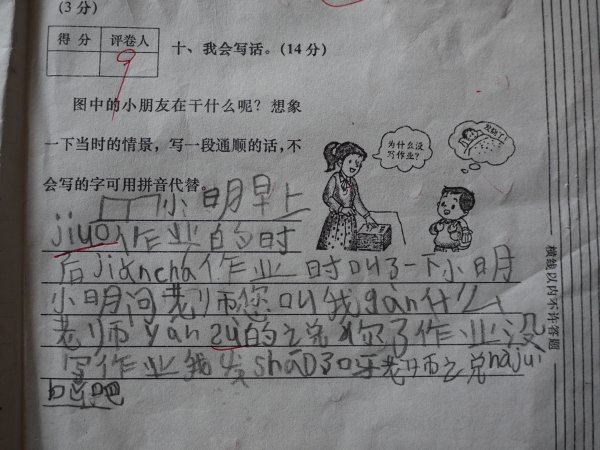 (3分)
得分 评卷人
9
十、我会写话。(14分)
图中的小朋友在干什么呢？想象
一下当时的情景，写一段通顺的话，不
会写的字可用拼音代替。
为什么没
写作业？
发烧了！
小明早上
jiuo作业的时
后jianchá作业 时叫了一下小明
小明问老师您叫我gàn什么
老师yan su的说 你了作业没
写作业我发shāo了呀老师说nàjui
吧
横线以内不许答题